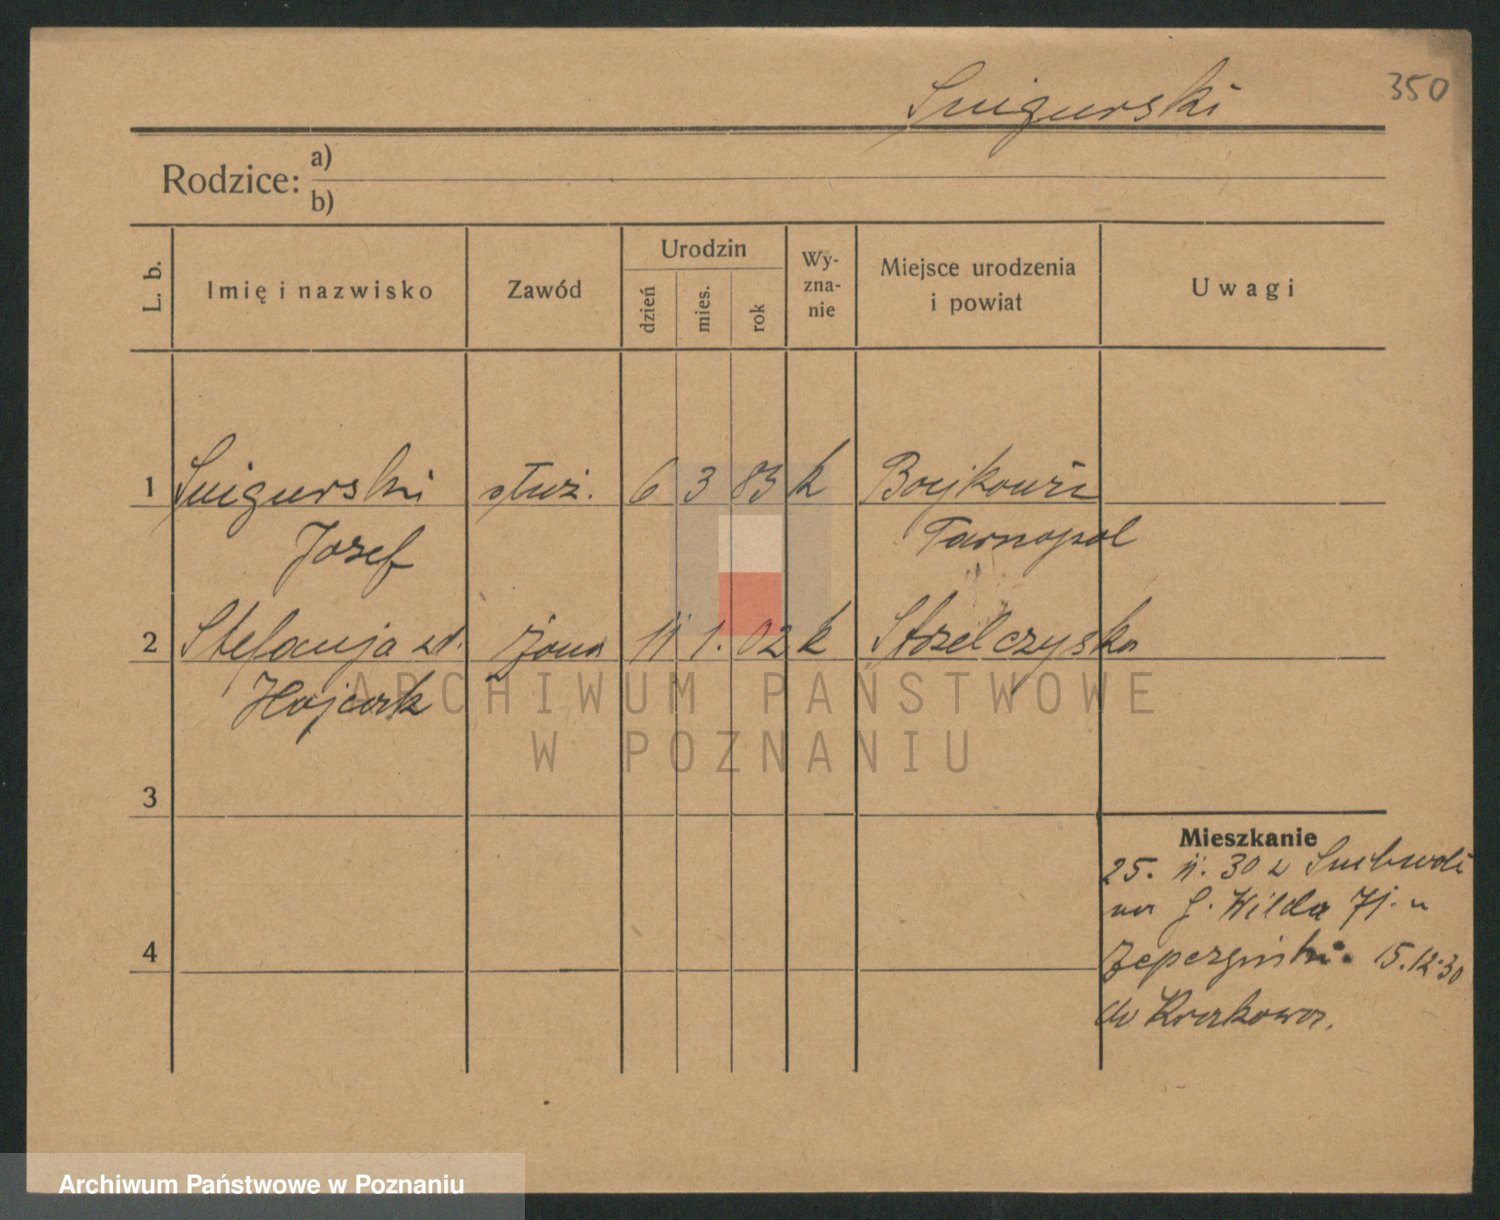 350
Snigurski
Rodzice:
a)
b)
L. b.
Imię i nazwisko
Zawód
Urodzin
dzień
mies.
rok
Wy-
zna-
nie
Miejsce urodzenia
i powiat
Uwagi
1 Snigurski służ. 6 3 83 k
Józef Tarnopol
2 Stefanja zd. żona 11 1. 02 k Strzelczyska
3
4
Mieszkanie
25. 11. 30 z
na G. Wilda 71. u
15.12.30
do Krakowa.
ARCHIWUM PAŃSTWOWE
W POZNANIU
Archiwum Państwowe w Poznaniu